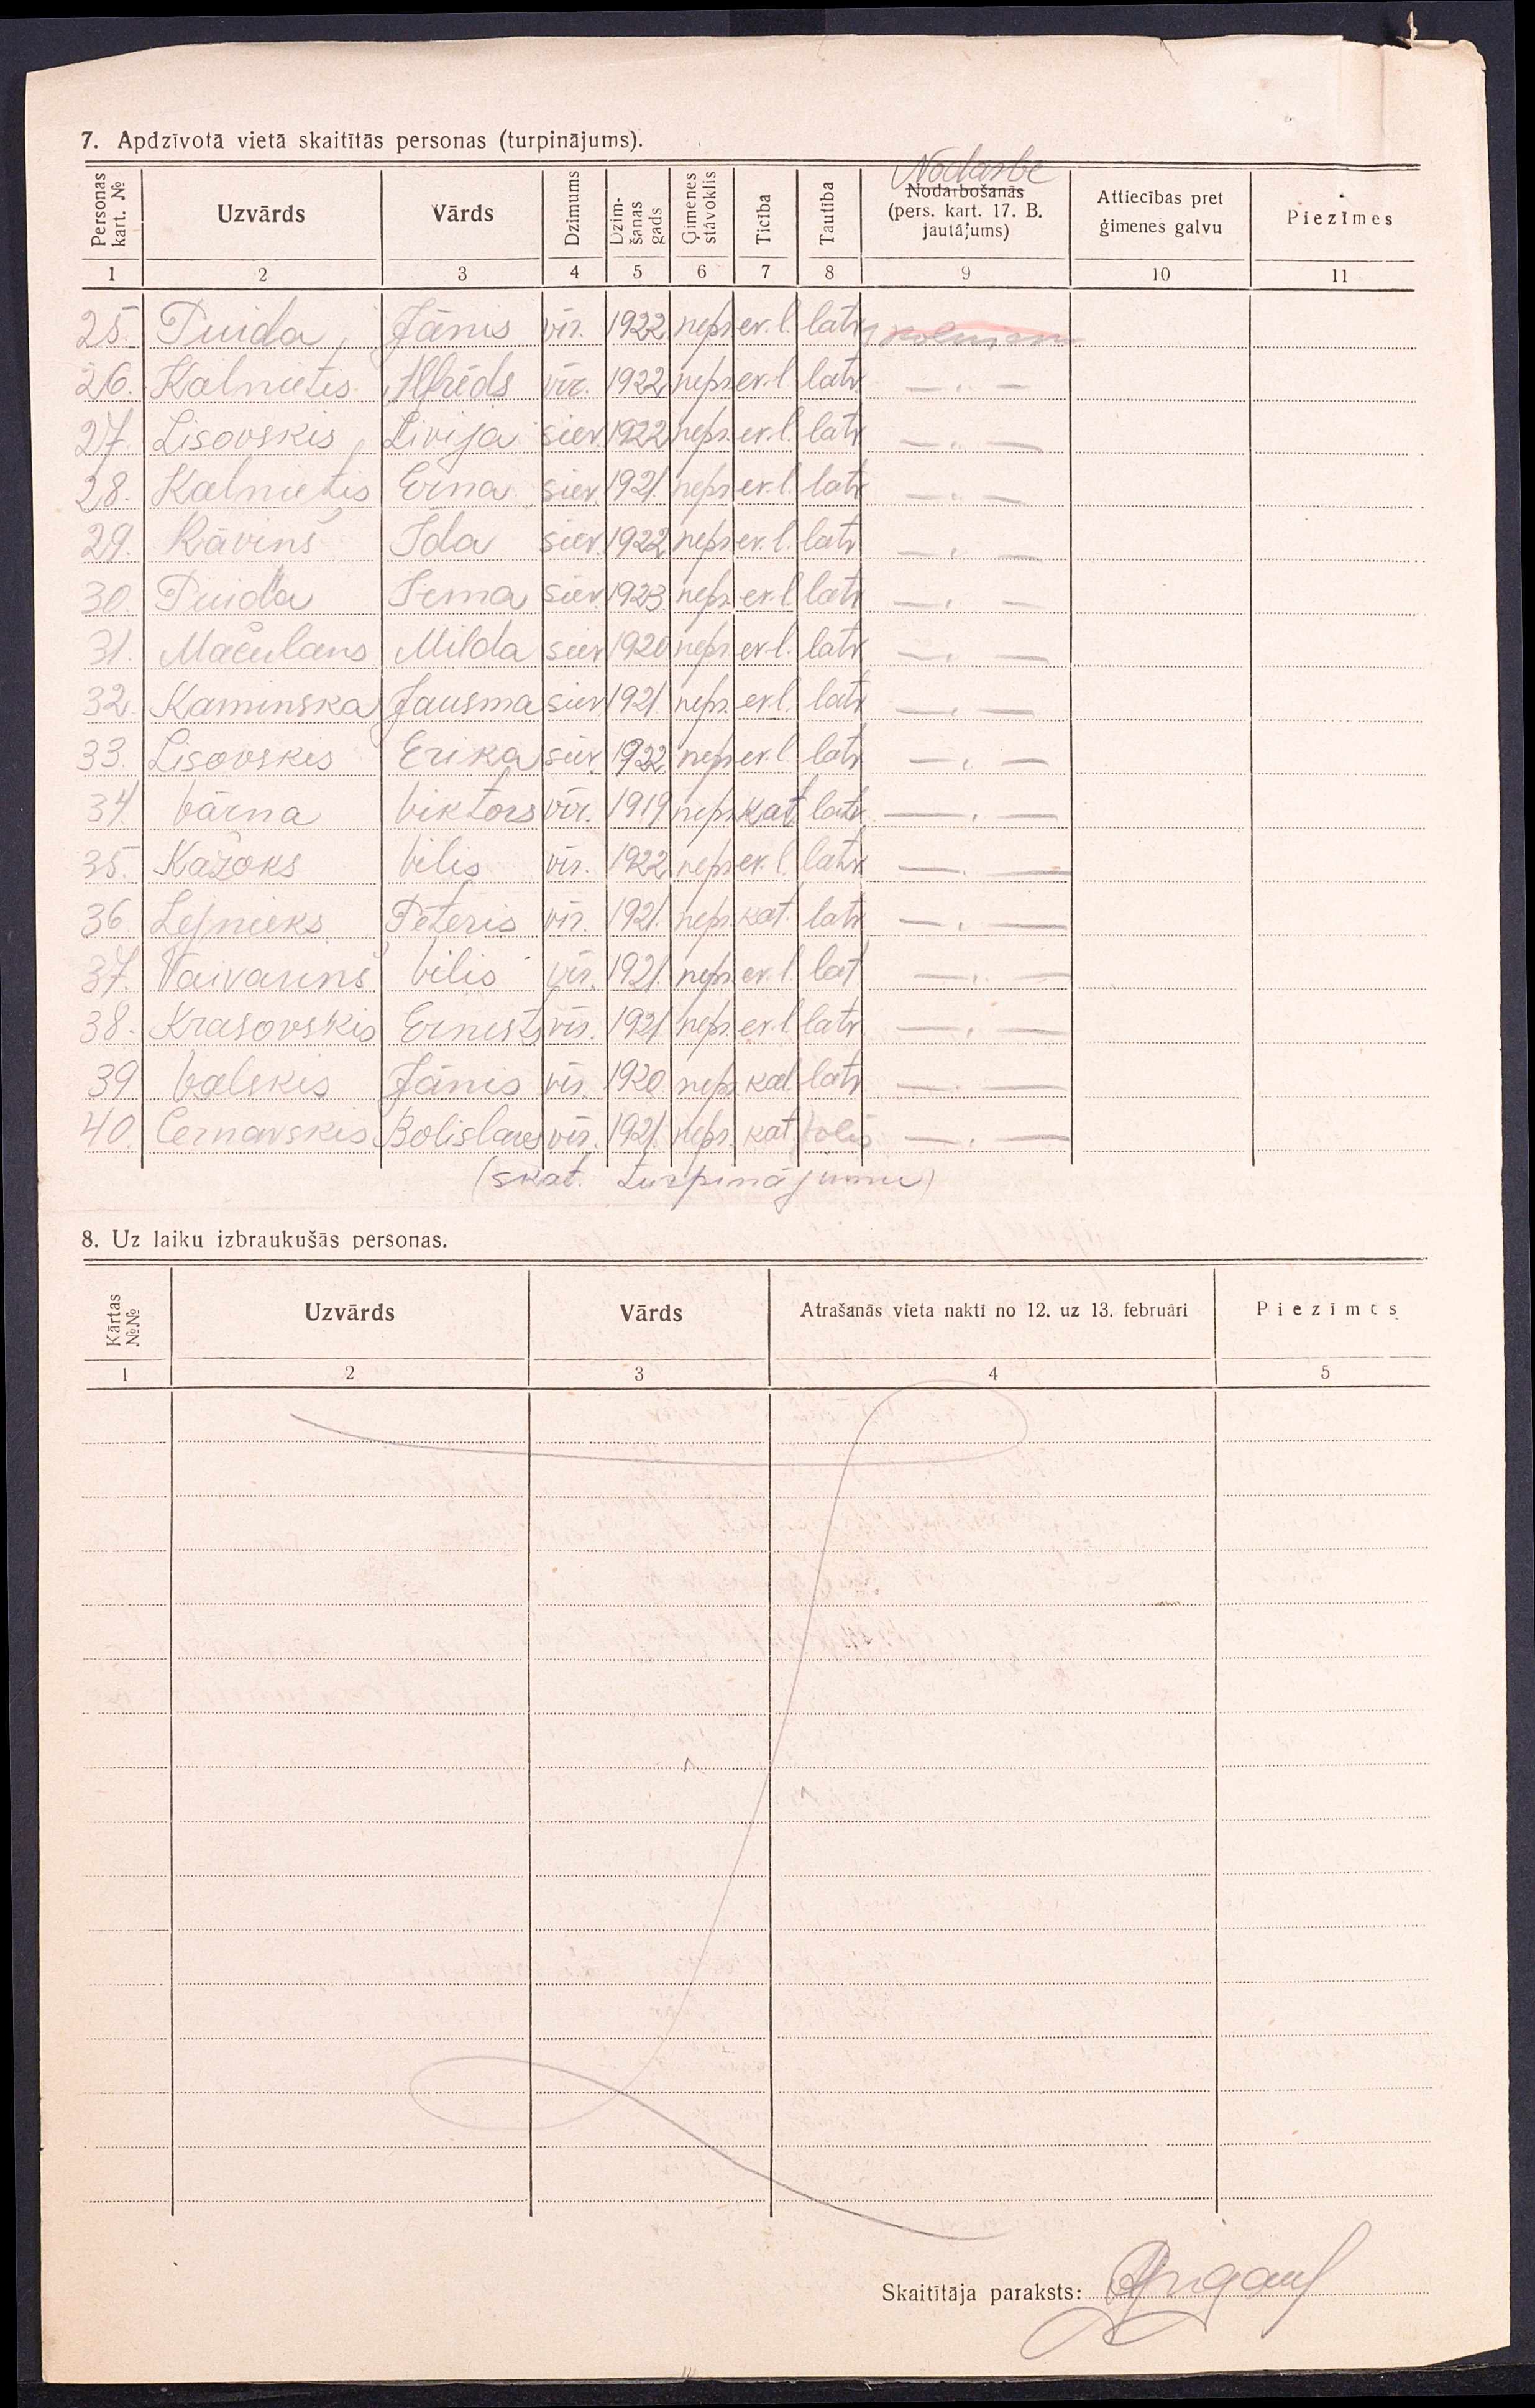 7. Apdzīvotā vietā skaitītās personas (turpinājums).
Personas kart. № Uzvārds Vārds Dzimums Dzimšanas gads Ģimenes stāvoklis Ticība Tautība Nodarbe Nodarbošanās (pers. kart. 17. B. jautājums) Attiecības pret ģimenes galvu Piezīmes
1 2 3 4 5 6 7 8 9 10 11
25. Puida Jānis vīr. 1922 nepr. ev. l. latv.
26. Kalnietis Alfrēds vīr. 1922 nepr. ev. l. latv. — „ —
27. Lisovskis Livija siev. 1922 nepr. ev. l. latv. — „ —
28. Kalnietis Erna siev. 1921. nepr. ev. l. latv — „ —
29. Rāviņš Ida siev. 1922 nepr. ev. l. latv — „ —
30. Puida Irma siev. 1923. nepr. ev. l latv — „ —
31. Mačulans Milda siev 1920 nepr. ev. l. latv — „ —
32. Kaminska Jausma siev 1921 nepr. ev. l. latv — „ —
33. Lisovskis Erika siev. 1922 nepr. ev. l. latv — „ —
34. Vārna Viktors vīr. 1919. nepr. kat. latv. — „ —
35. Kažoks Vilis vīr. 1922 nepr. ev. l. latv — „ —
36. Lejnieks Pēteris vīr. 1921. nepr. kat. latv — „ —
37. Vaivariņš Vilis vīr. 1921. nepr. ev. l. lat — „ —
38. Krasovskis Ernests vīr. 1921. nepr. ev. l. latv — „ —
39. Valskis Jānis vīr. 1920. nepr. kat. latv — „ —
40. Cernavskis Bolislavs vīr. 1921. nepr. kat. polis — „ —
(skat. turpinājumu)
8. Uz laiku izbraukušās personas.
Kārtas №№ Uzvārds Vārds Atrašanās vieta naktī no 12. uz 13. februāri Piezīmes
1 2 3 4 5
Skaitītāja paraksts: